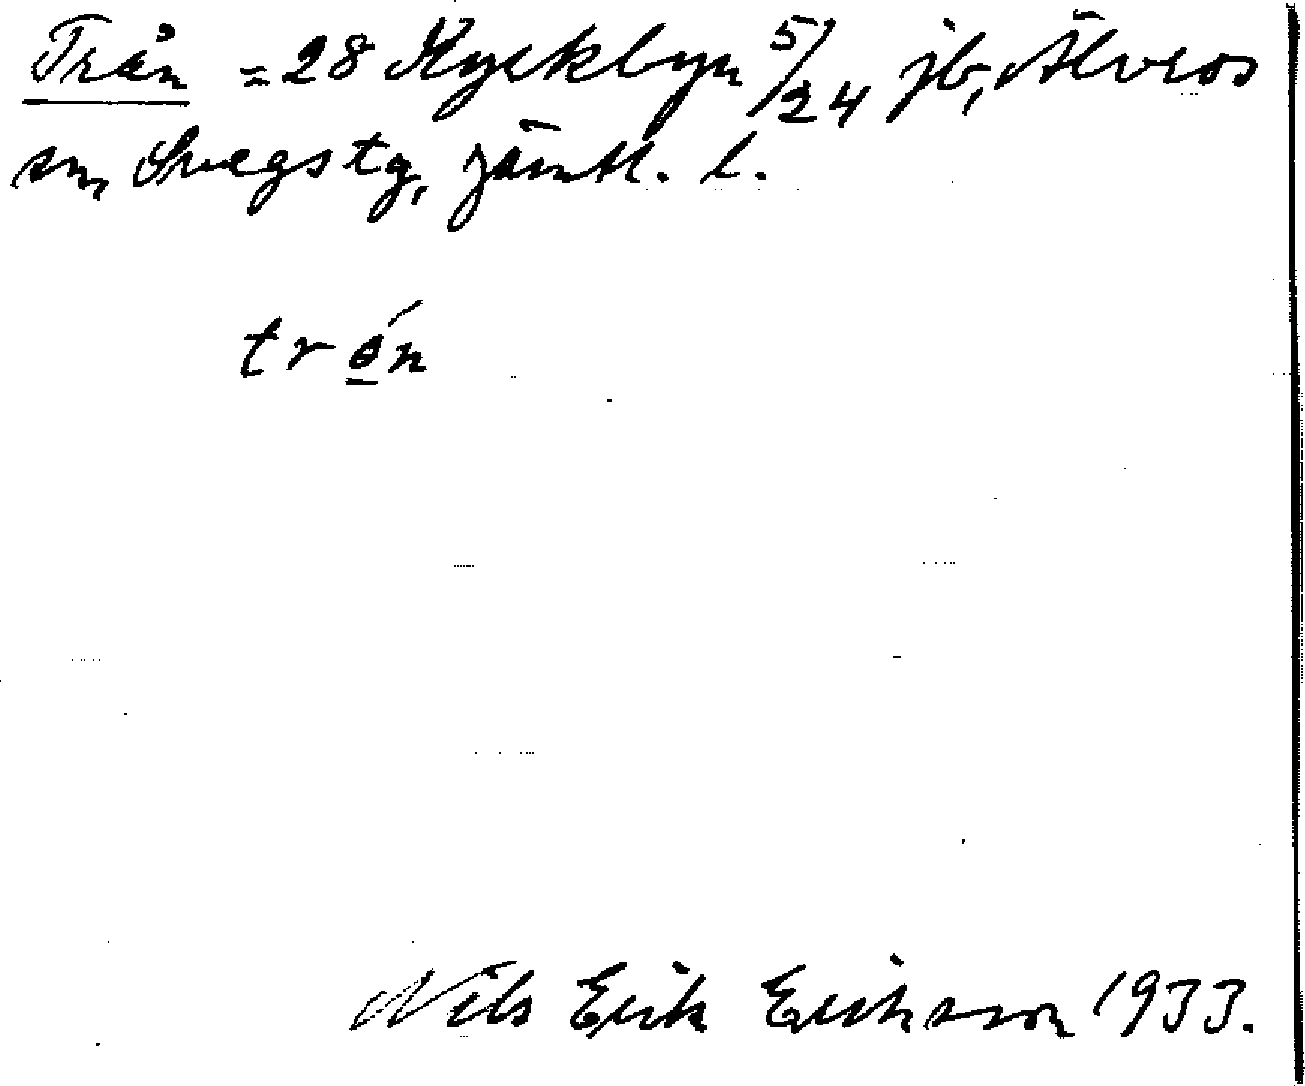 Trån = 28 Kyckbyn 5/24 jb, Älvros
sn, Svegs tg, Jämtl. l.
trǫ́n
Nils Erik Erikson 1933.